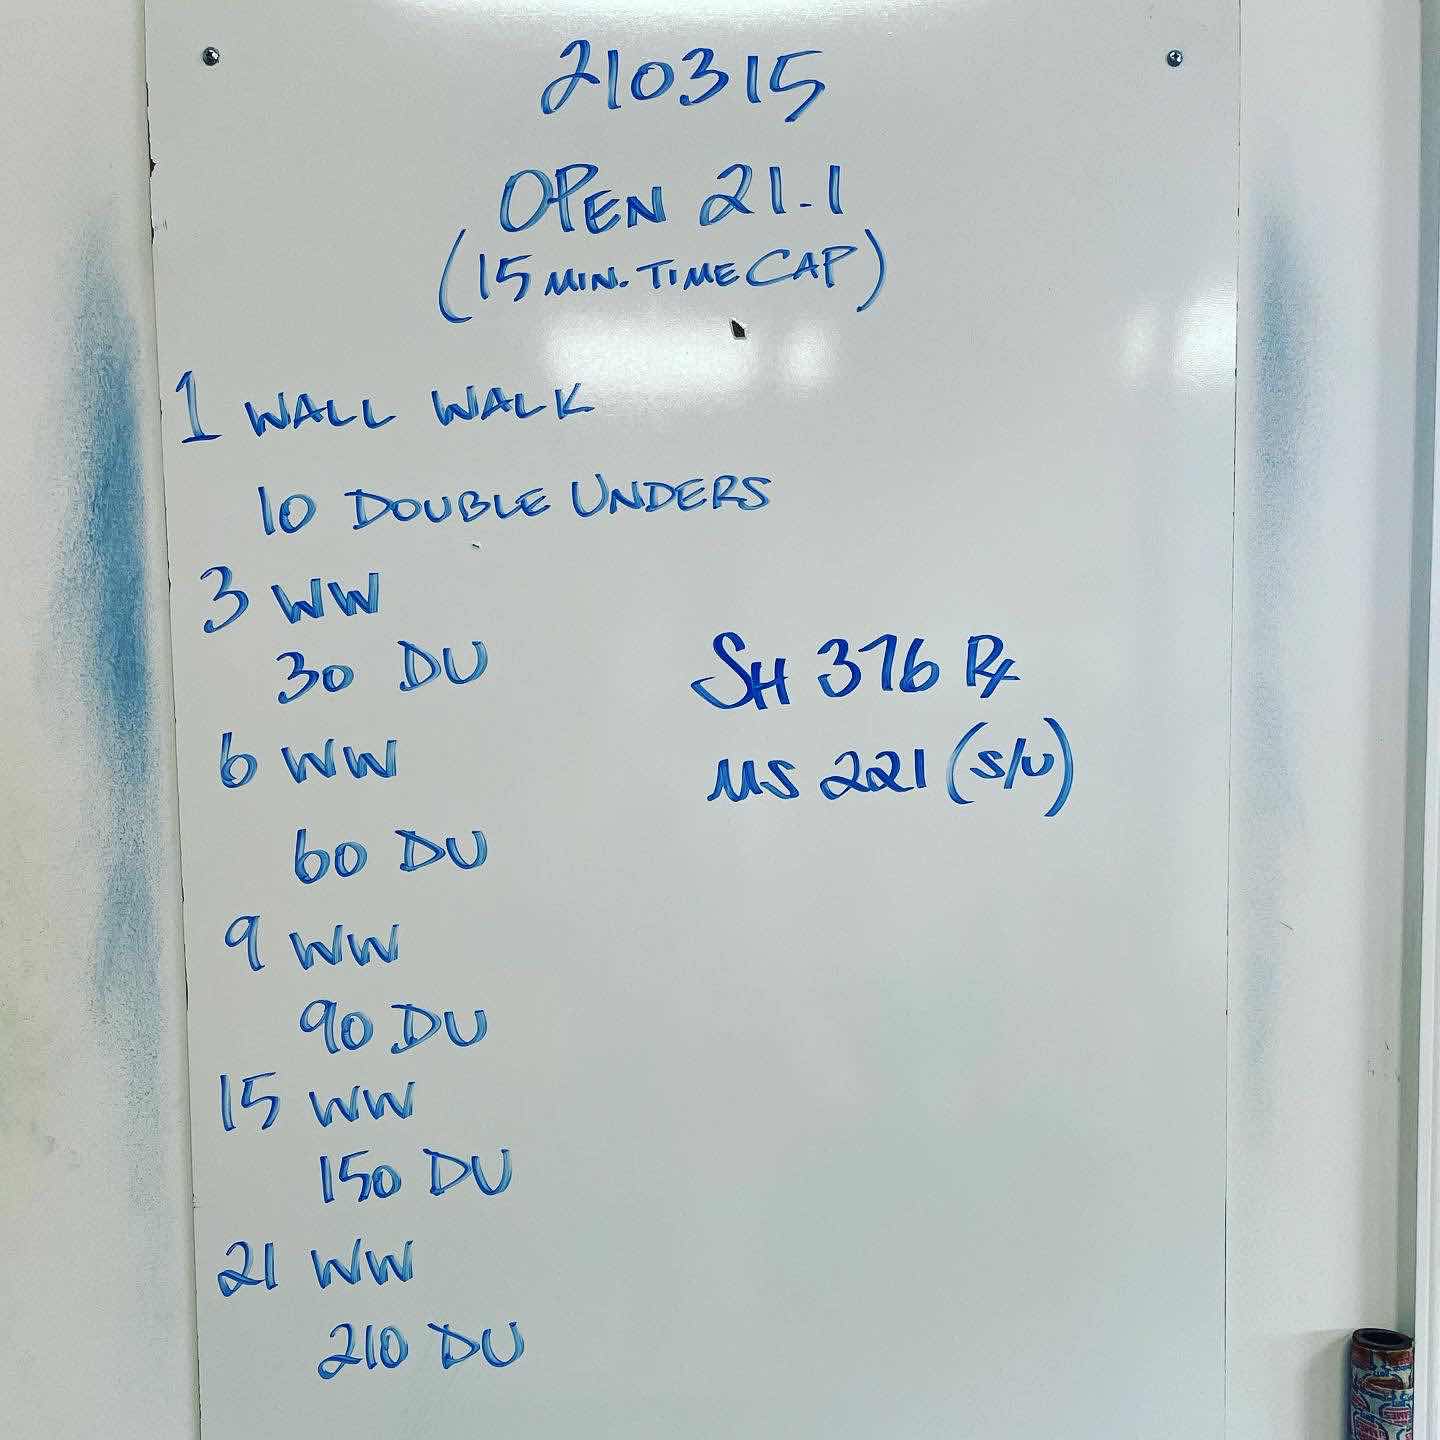 210315
OPEN 21.1
(15 MIN. TIME CAP)
1 WALL WALK
10 DOUBLE UNDERS
3 WW
30 DU
6 WW
60 DU
9 WW
90 DU
15 WW
150 DU
21 WW
210 DU
SH 376 Rx
MS 221 (S/U)